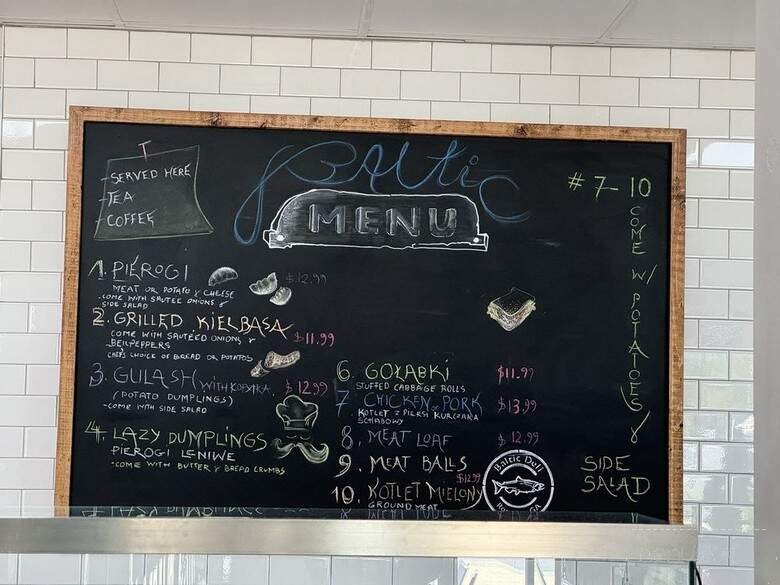 Baltic
MENU
SERVED HERE
-TEA
-COFFEE
1. PIEROGI $12.99
MEAT OR POTATO & CHEESE
-COME WITH SAUTEE ONIONS &
SIDE SALAD
2. GRILLED KIELBASA
COME WITH SAUTÉED ONIONS &
BELLPEPPERS $11.99
CHEF'S CHOICE OF BREAD OR POTATOS
3. GULASH WITH KOPYTKA $12.99
(POTATO DUMPLINGS)
-COME WITH SIDE SALAD
4. LAZY DUMPLINGS
PIEROGI LENIWE
-COME WITH BUTTER & BREAD CRUMBS
6. GOŁĄBKI $11.99
STUFFED CABBAGE ROLLS
7. CHICKEN or PORK $13.99
KOTLET Z PIERSI KURCZAKA
SCHABOWY
8. MEAT LOAF $12.99
9. MEAT BALLS
$12.99
10. KOTLET MIELONY
GROUND MEAT
Baltic Deli
GA
#7-10
COME W/ POTATOES &
SIDE
SALAD